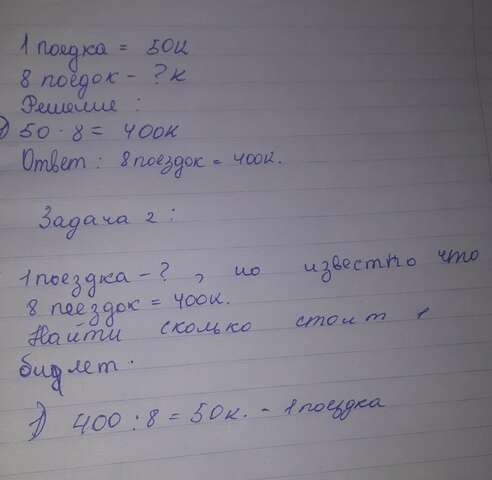 1 поедка = 50к
8 поедок - ? к
Решение :
1) 50 · 8 = 400к
Ответ : 8 поездок = 400к.
Задача 2 :
1 поездка - ? , но известно что
8 поездок = 400к.
Найти сколько стоит 1
билет.
1) 400 : 8 = 50к. - 1 поездка